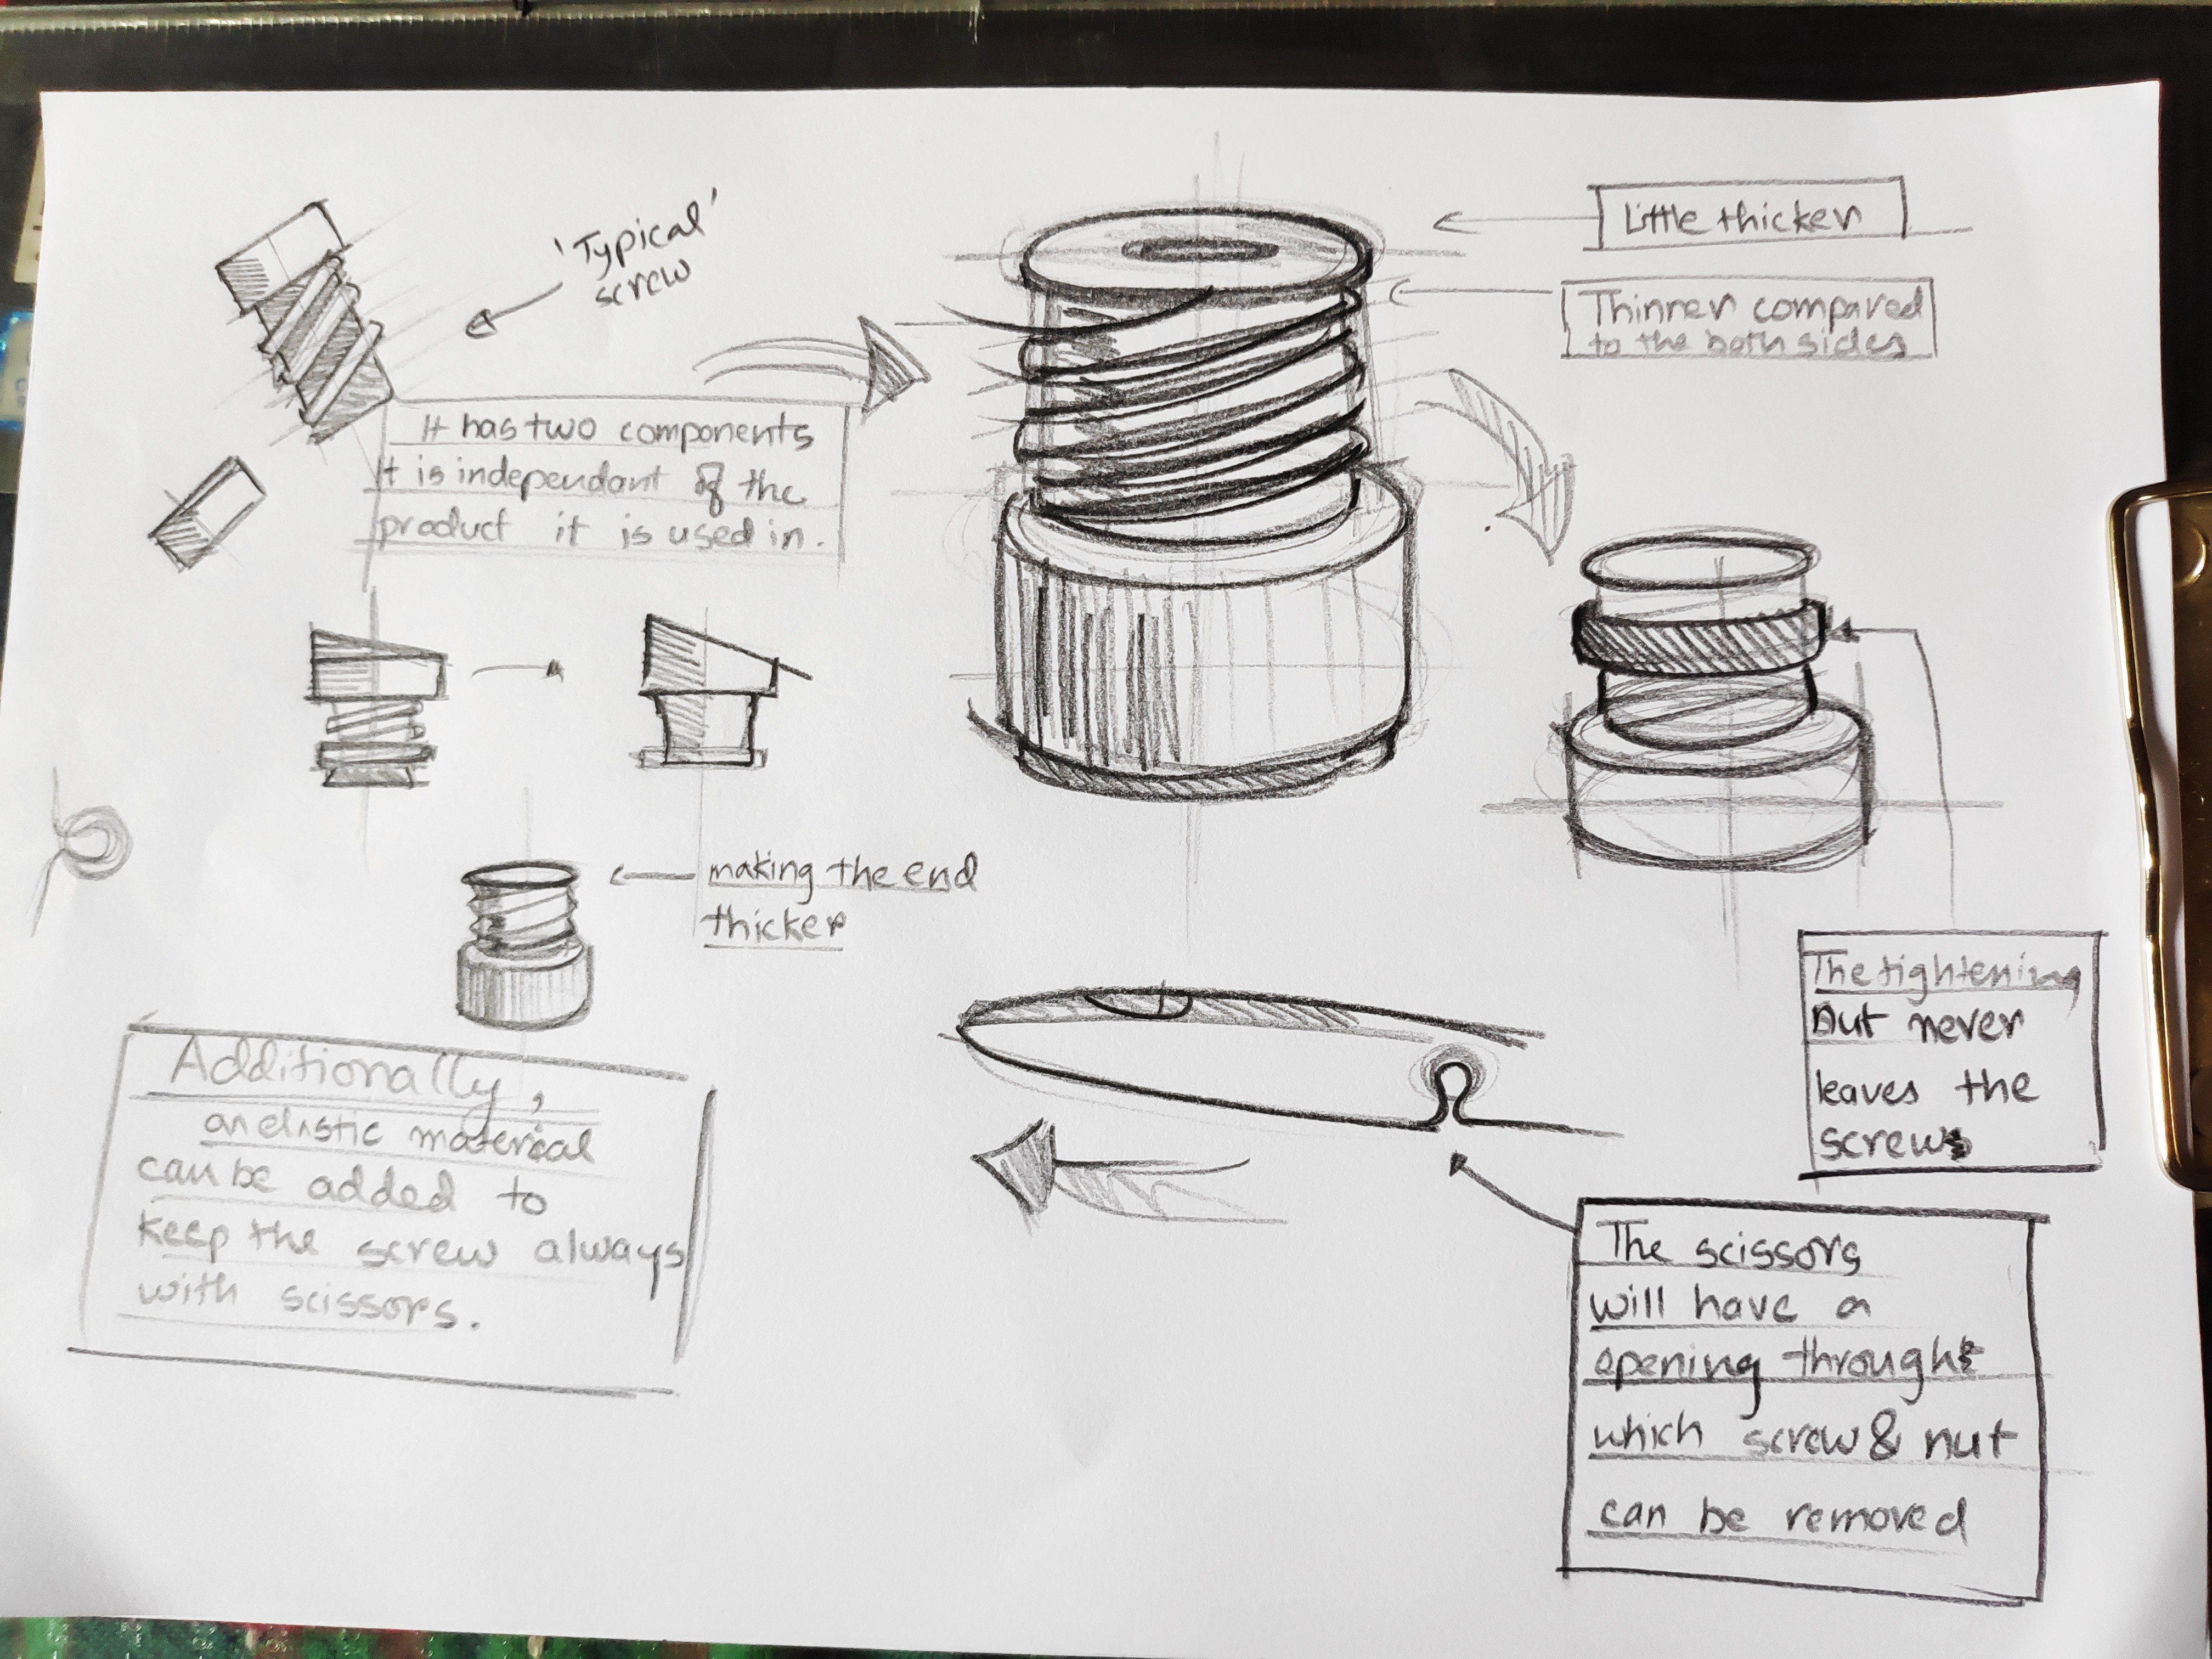 'Typical'
screw
Little thicker
Thinner compared
to the both sides
It has two components
It is independant of the
product it is used in.
making the end
thicker
The tightening
nut never
leaves the
screws
Additionally,
an elastic material
can be added to
keep the screw always
with scissors.
The scissors
will have a
opening through
which screw & nut
can be removed